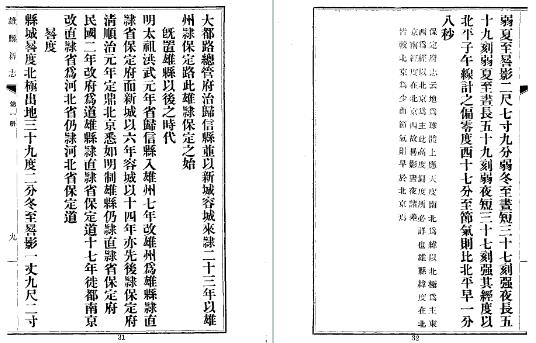 大都路總管府治歸信縣並以新城容城來隸二十三年以雄
州隸保定路此雄隸保定之始
既置雄縣以後之時代
明太祖洪武元年省歸信縣入雄州七年改雄州爲雄縣隸直
隸省保定府而新城以六年容城以十四年亦先後隸保定府
清順治元年定鼎北京悉如明制雄縣仍隸直隸省保定府
民國二年改府爲道雄縣隸直隸省保定道十七年徙都南京
改直隸省爲河北省仍隸河北省保定道
晷度
縣城晷度北極出地三十九度二分冬至晷影一丈九尺二寸
雄縣新志
第一冊
九
31
弱夏至晷影二尺七寸九分弱冬至晝短三十七刻强夜長五
十九刻弱夏至晝長五十九刻弱夜短三十七刻强其經度以
北平子午線計之偏零度四十七分至節氣則比北平早一分
八秒
保定府志云地爲球體上應天度南北爲緯以北極爲主東
西爲經以北京爲主此高度偏度所必詳也雄縣緯度在北
京南經度在北京西故晷影晝夜諸差
皆較北京爲少而節氣則早於北京焉
32